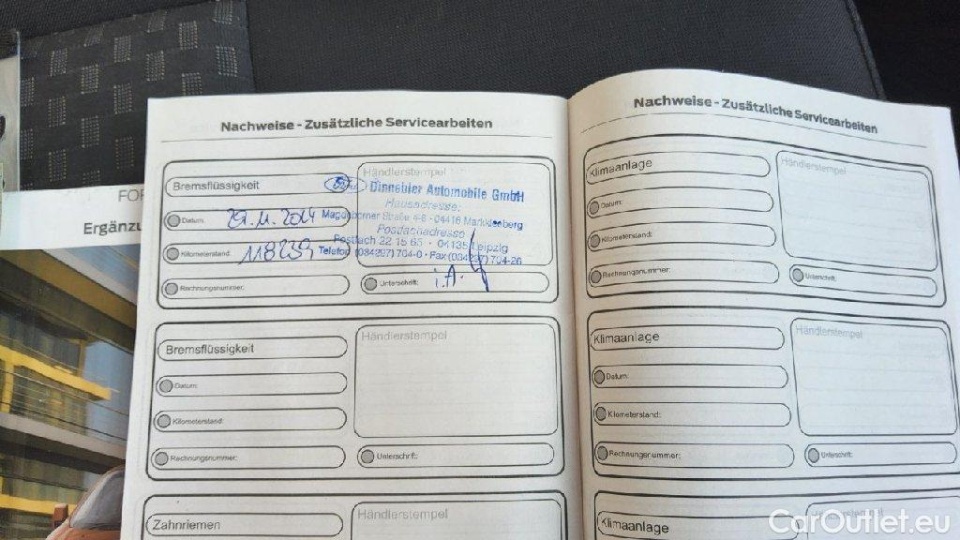 FOR
Ergänzu
Nachweise - Zusätzliche Servicearbeiten
Bremsflüssigkeit
Händlerstempel
Dinnebier Automobile GmbH
Hausadresse:
Magdeborner Straße 4-6 - 04416 Markkleeberg
Postfachadresse
Postfach 22 15 65 - 04135 Leipzig
Telefon (034297) 704-0 - Fax (034297) 704-26
Datum:
Kilometerstand:
118239
Rechnungsnummer:
Unterschrift:
i.A.
Bremsflüssigkeit
Händlerstempel
Datum:
Kilometerstand:
Rechnungsnummer:
Unterschrift:
Zahnriemen
Händlerstempel
Nachweise - Zusätzliche Servicearbeiten
Klimaanlage
Händlerstempel
Datum:
Kilometerstand:
Rechnungsnummer:
Unterschrift:
Klimaanlage
Händlerstempel
Datum:
Kilometerstand:
Rechnungsnummer:
Unterschrift:
Klimaanlage
Händlerstempel
CarOutlet.eu